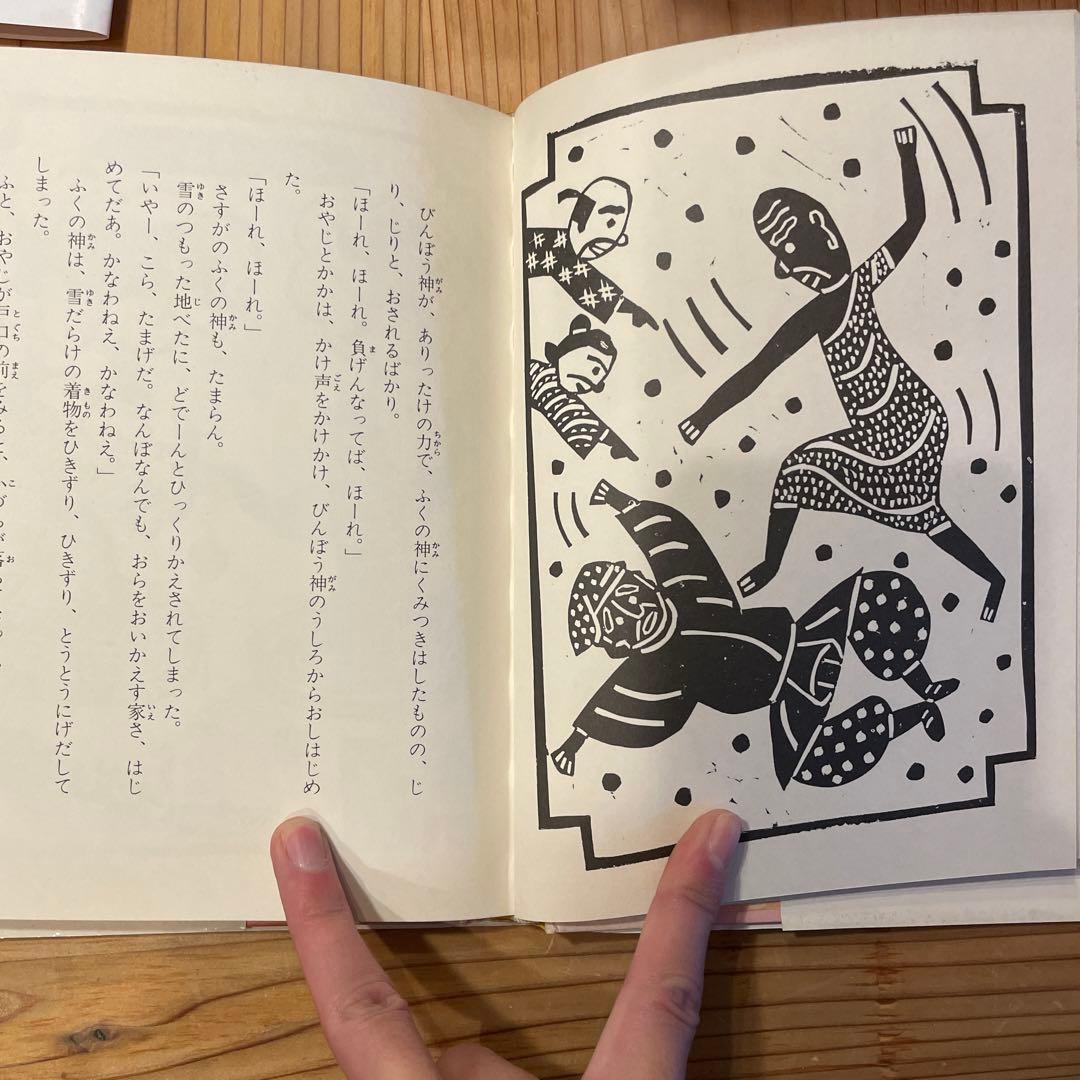 びんぼう神が、ありったけの力で、ふくの神にくみつきはしたものの、じ
り、じりと、おされるばかり。
「ほーれ、ほーれ。負げんなってば、ほーれ。」
おやじとかかは、かけ声をかけかけ、びんぼう神のうしろからおしはじめ
た。
「ほーれ、ほーれ。」
さすがのふくの神も、たまらん。
雪のつもった地べたに、どでーんとひっくりかえされてしまった。
「いやー、こら、たまげだ。なんぼなんでも、おらをおいかえす家さ、はじ
めてだあ。かなわねえ、かなわねえ。」
ふくの神は、雪だらけの着物をひきずり、ひきずり、とうとうにげだして
しまった。
ふと、おやじが戸口の前をみると、